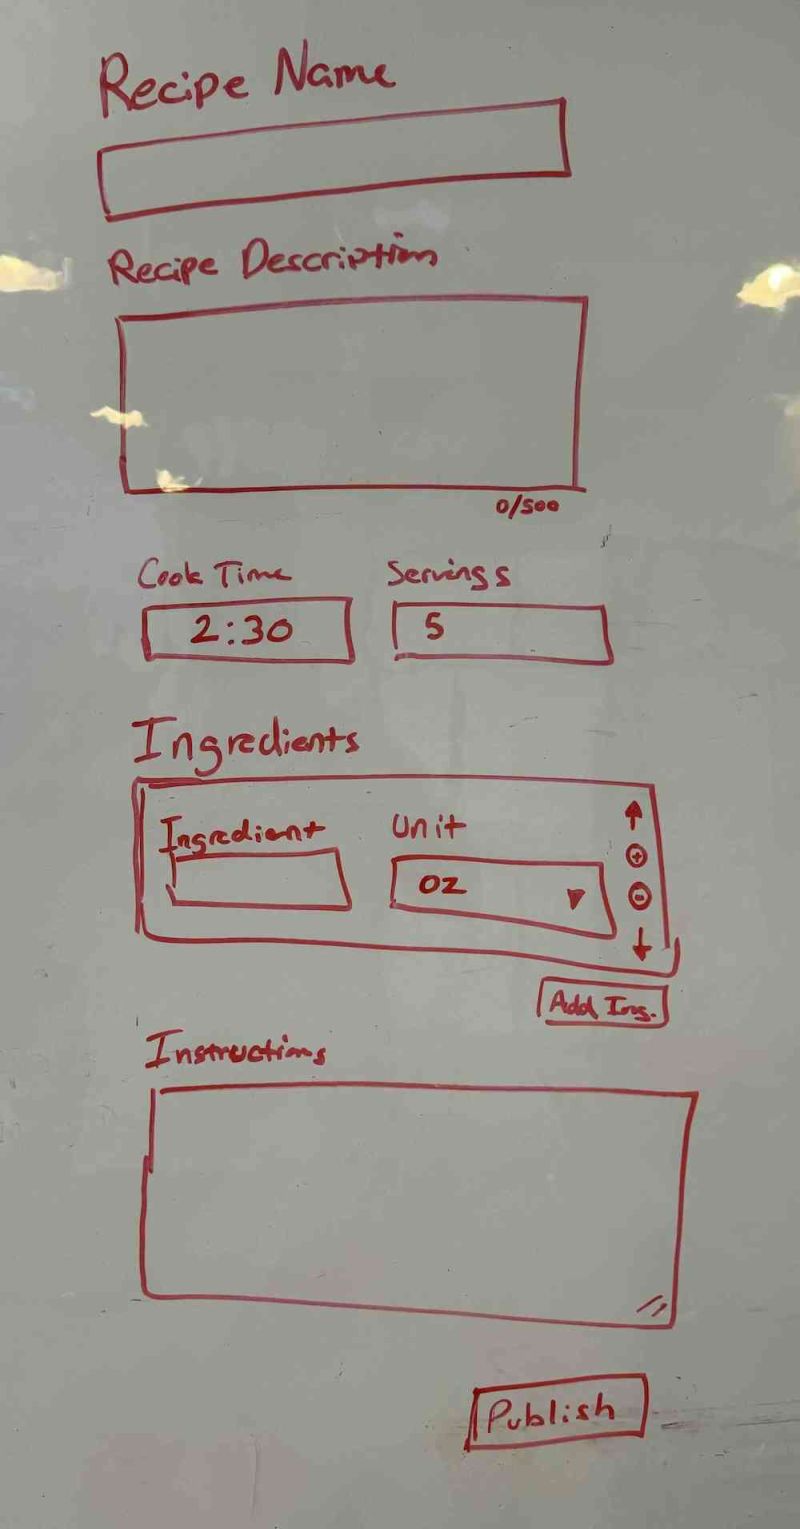 Recipe Name
Recipe Description
0/500
Cook Time Servings
2:30 5
Ingredients
Ingredient Unit
oz
Add Ing.
Instructions
Publish